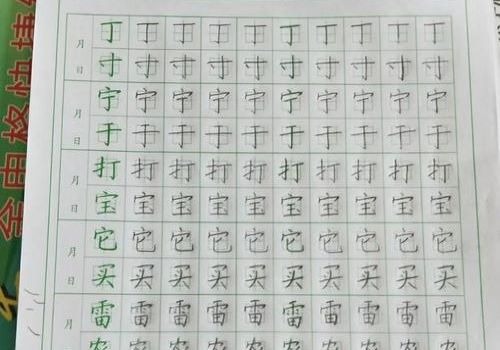 丁丁丁丁丁丁丁丁丁丁
月
寸寸寸寸寸寸寸寸寸寸
日
宁宁宁宁宁宁宁宁宁宁
月
于于于于于于于于于于
日
打打打打打打打打打打
月
宝宝宝宝宝宝宝宝宝宝
日
它它它它它它它它它它
月
买买买买买买买买买买
日
雷雷雷雷雷雷雷雷雷雷
月
农农农农农农农农农农